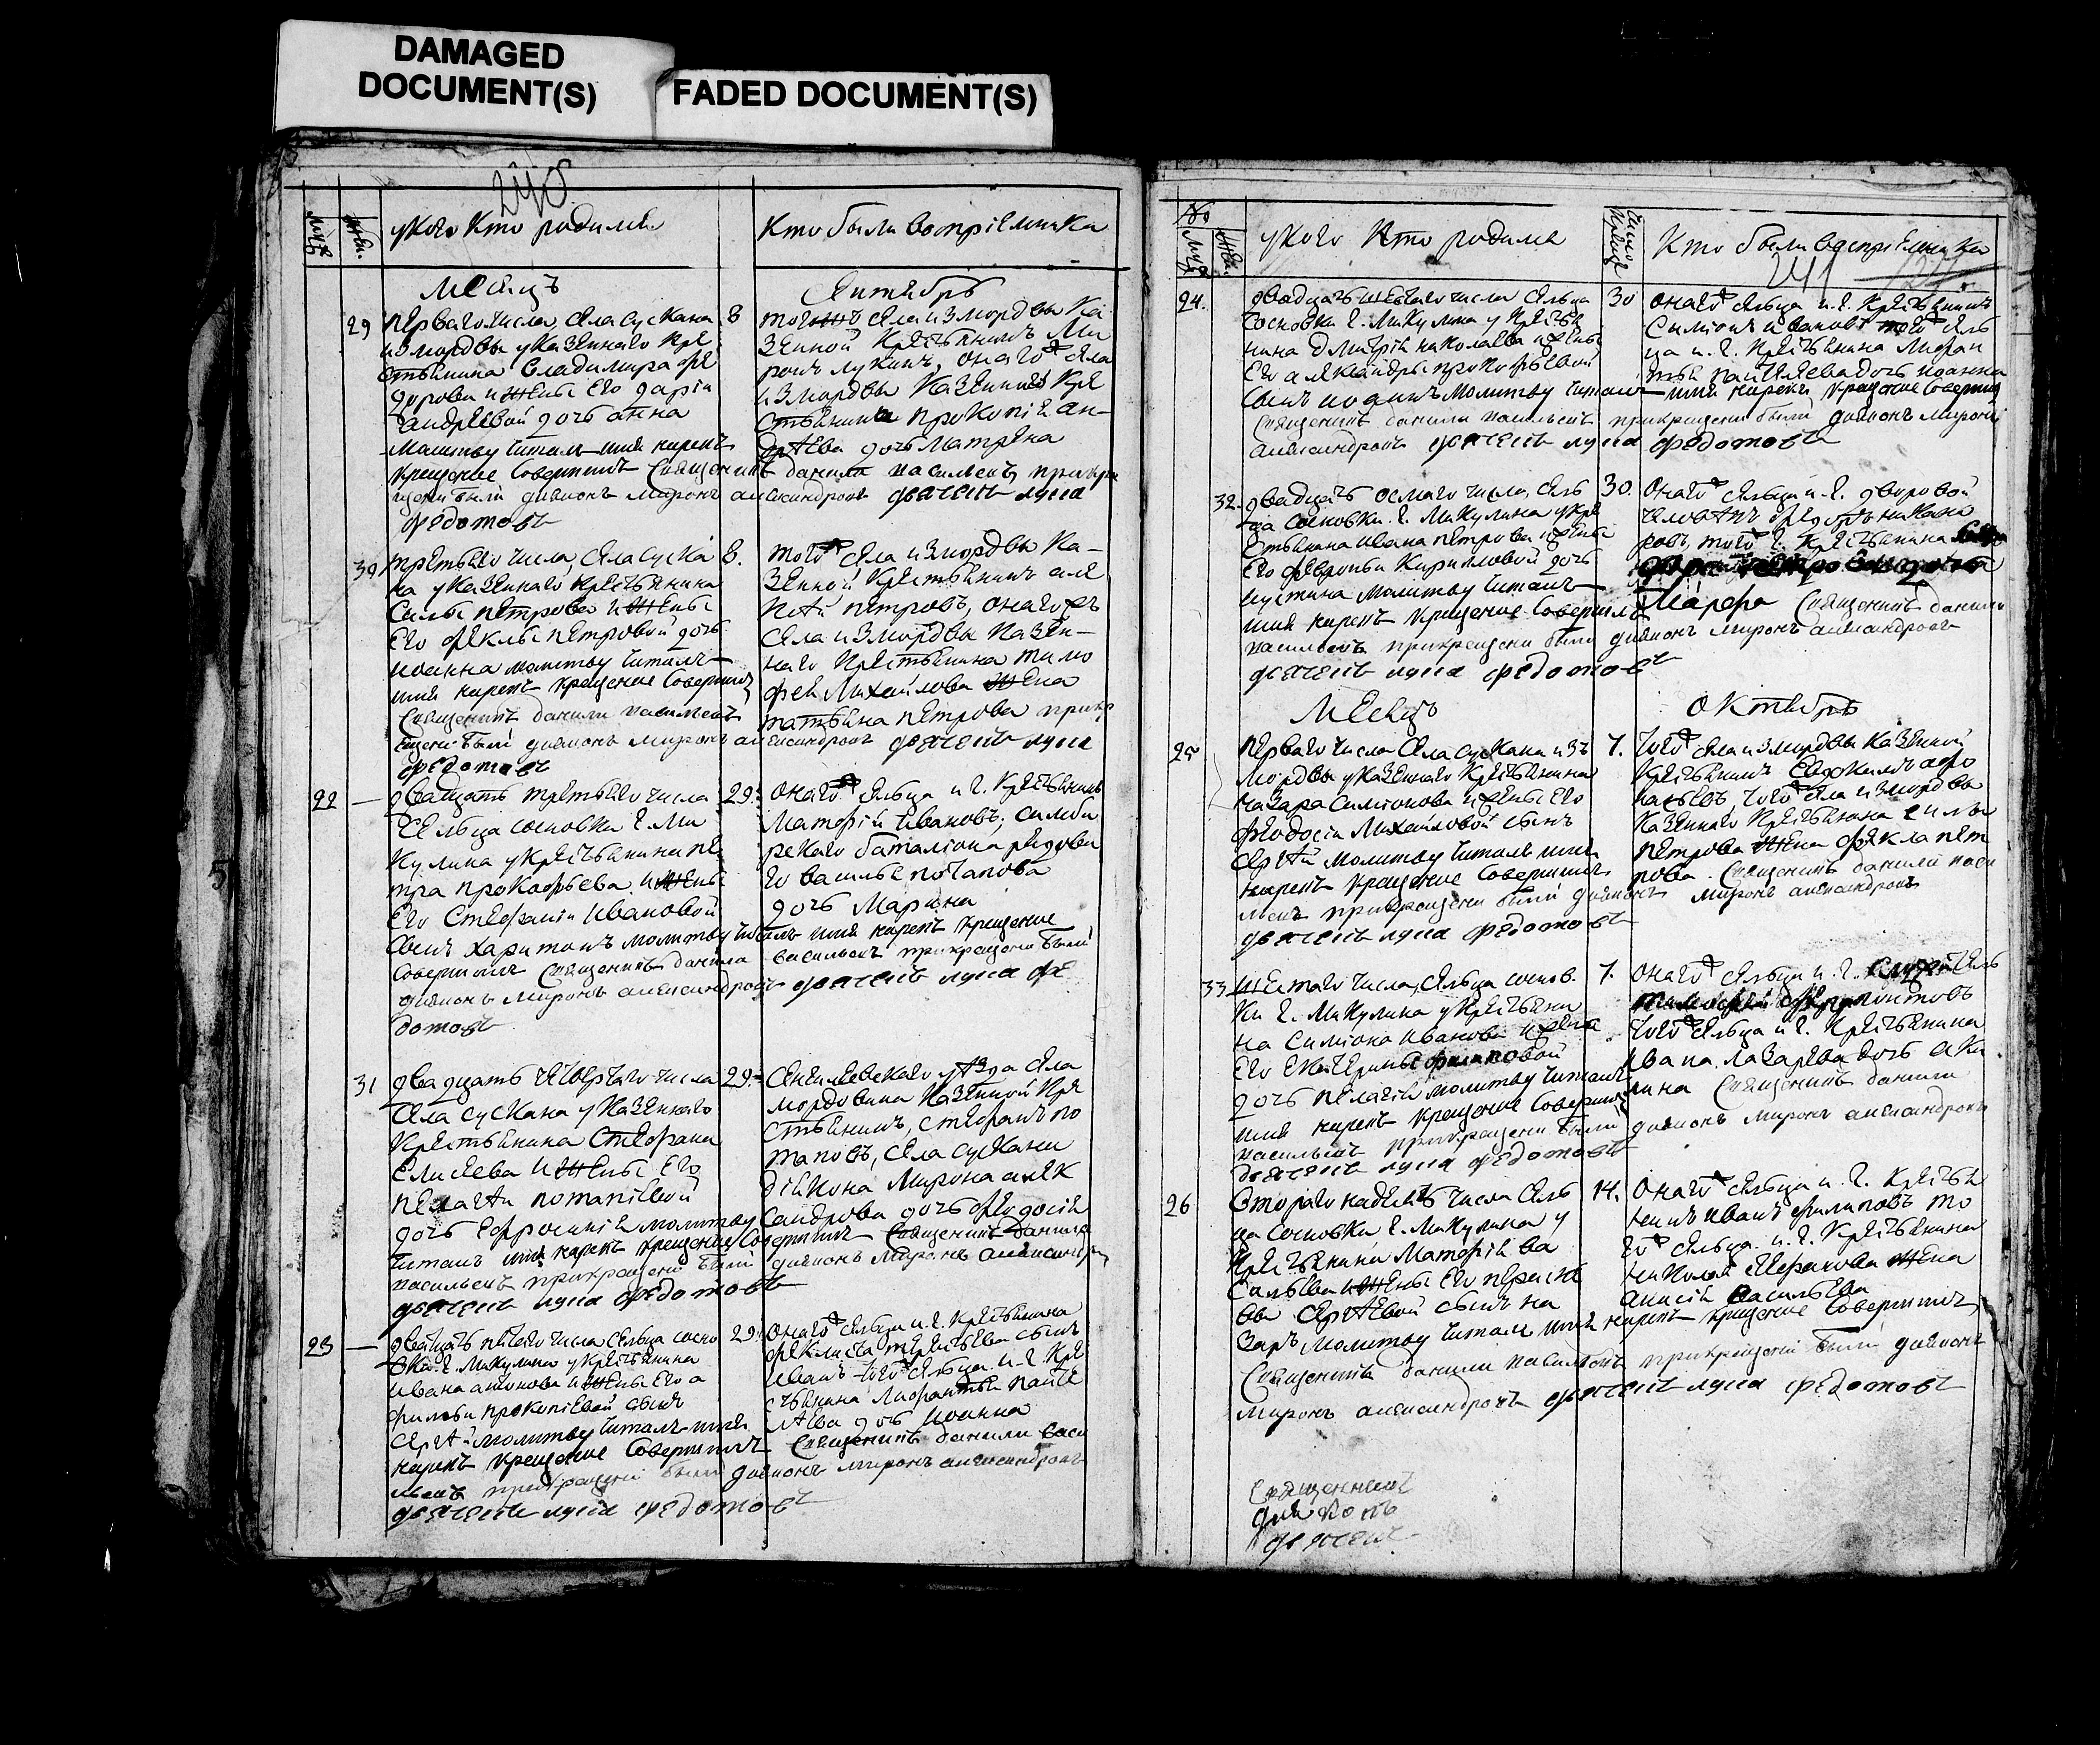 DAMAGED
DOCUMENT(S)
FADED DOCUMENT(S)
240
муж.
жен.
у кого кто родился
кто были восприемники
месяцъ
сентябрь
29
перваго числа, села сускана
измордвы указеннаго кре
стьянина владимира фе
дорова и жены его дарiи
андреевой дочь анна
молитву читалъ имя нарекъ
крещение совершилъ священникъ данила васильевъ, прикре
щени были дияконъ миронъ александровъ дьячекъ лука
федотовъ
8
тогожъ села измордвы ка
зенной крестьянинъ ми
ронъ лукинъ, онагожъ села
измордвы казеннаго кре
стьянина прокопiя ан-
дреева дочь матрена
30
третьяго числа, села суска
на указеннаго крестьянина
силы петрова и жены
его феклы петровой дочь
иоанна молитву читалъ
имя нарекъ крещение совершилъ
священникъ данила васильевъ прикре
щени были дияконъ миронъ александровъ дьячекъ лука
федотовъ
8.
тогожъ села измордвы ка-
зенной крестьянинъ але
ксей петровъ, онагожъ
села измордвы казен-
наго крестьянина тимо
фея михайлова жена
татьяна петрова
22
двадцать третьяго числа
сельца сосновки г. ми
кулина у крестьянина пе
тра прокофьева и жены
его стефанiи ивановой
сынъ харитонъ молитву читалъ имя нарекъ крещение
совершилъ священникъ данила васильевъ прикрещени были
дияконъ миронъ александровъ дьячекъ лука фе
дотовъ
29.
онагожъ сельца и г. крестьянинъ
матфей ивановъ, симби
рскаго баталiона рядова
го василья потапова
дочь марина
31
двадцать четвертаго числа
села сускана указеннаго
крестьянина стефана
елисеева и жены его
пелагеи потапiевой
дочь ефросинiя молитву
читалъ имя нарекъ крещение совершилъ священникъ данила
васильевъ прикрещени были дияконъ миронъ александровъ
дьячекъ лука федотовъ
29.
сенгилеевскаго уезда села
мордовина казенной кре
стьянинъ, стефанъ по
таповъ, села сускана
дiякона мирона алек
сандрова дочь феодосiя
23
двадцать пятаго числа сельца сосно
вки г. микулина у крестьянина
ивана антонова и жены его а
фимьи прокопiевой сынъ
сергей молитву читалъ имя
нарекъ крещение совершилъ священникъ данила васи
льевъ прикрещени были дияконъ миронъ александровъ
дьячекъ лука федотовъ
29.
онагожъ сельца и г. крестьянина
феклиста терентьева сынъ
иванъ тогожъ сельца и г. кре
стьянина
дочь иоанна
№
муж.
жен.
у кого кто родился
число крещ.
кто были восприемники
241
24.
двадцать шестаго числа сельца
сосновки г. микулина у крестья
нина дмитрiя николаева и жены
его александры прокофьевой
сынъ молитву читалъ имя нарекъ крещение совершилъ
священникъ данила васильевъ прикрещени были дияконъ миронъ
александровъ дьячекъ лука федотовъ
30
онагожъ сельца и г. крестьянинъ
симiонъ ивановъ тогожъ сель
ца и г. крестьянина
дочь иоанна
32.
двадцать осмаго числа, сель
ца сосновки г. микулина у кре
стьянина ивана петрова и жены
его февроньи кириловой дочь
иустина молитву читалъ
имя нарекъ крещение совершилъ
васильевъ прикрещени были дияконъ миронъ александровъ
дьячекъ лука федотовъ
30.
онагожъ сельца и г. дворовой
человекъ федоръ никано
ровъ, тогожъ г. крестьянина
марфа священникъ данила
месяцъ
октябрь
25
перваго числа села сускана изъ
мордвы указеннаго крестьянина
назара симiонова и жены его
феодосiи михайловой сынъ
сергей молитву читалъ имя
нарекъ крещение совершилъ
льевъ прикрещени были дияконъ миронъ александровъ
дьячекъ лука федотовъ
7.
тогожъ села измордвы казенной
крестьянинъ евдокимъ афо
насьевъ, тогожъ села измордвы
казеннаго крестьянина силы
петрова жена фекла пет
рова. священникъ данила васи
33
шестаго числа, сельца соснов.
ки г. микулина у крестьяни
на симiона иванова и жены
его екатерины филиповой
дочь пелагея молитву читалъ
имя нарекъ крещение совершилъ
васильевъ прикрещени были дияконъ миронъ александровъ
дьячекъ лука федотовъ
7.
онагожъ сельца и г. служитель
тогожъ сельца и г. крестьянина
ивана лазарева дочь аку
лина священникъ данила
26
втораго надесять числа сель
ца сосновки г. микулина у
крестьянина матфея ва
сильева и жены его
сергеевой сынъ на
заръ молитву читалъ имя нарекъ крещение совершилъ
священникъ данила васильевъ прикрещени были дияконъ
миронъ александровъ дьячекъ лука федотовъ
14.
онагожъ сельца и г. крестья
нинъ иванъ филиповъ то
гожъ сельца и г. крестьянина
николая жена
анисiя васильева
священникъ
дияконъ
дьячекъ